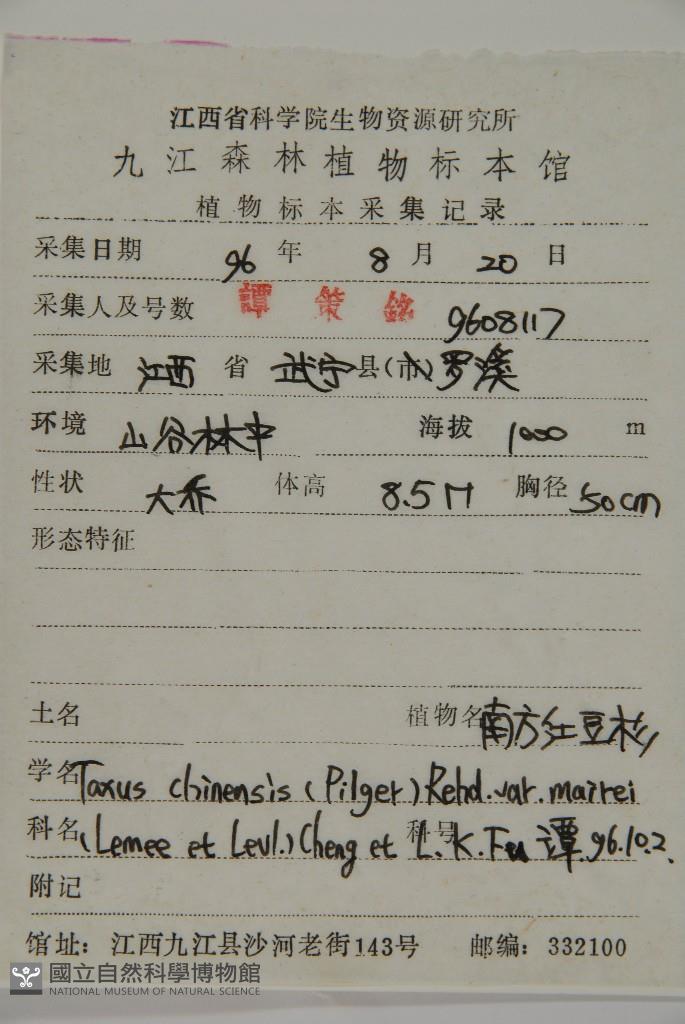 江西省科学院生物资源研究所
九江森林植物标本馆
植物标本采集记录
采集日期 96 年 8 月 20 日
采集人及号数 譚策銘 9608117
采集地 江西 省 武宁 县(市) 罗溪
环境 山谷林中 海拔 1000 m
性状 大乔 体高 8.5M 胸径 50cm
形态特征
土名 植物名 南方红豆杉
学名 Taxus chinensis (Pilger) Rehd. var. mairei
科名 (Lemee et Levl.) Cheng et 科号 L. K. Fu 谭 96.10.2.
附记
馆址：江西九江县沙河老街143号 邮编：332100
國立自然科學博物館
NATIONAL MUSEUM OF NATURAL SCIENCE